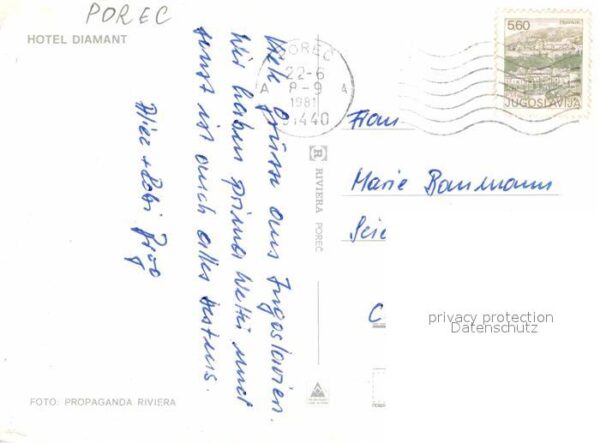 POREC
HOTEL DIAMANT
Viele Grüsse aus Jugoslavien.
Wir haben prima Wetter und
sonst ist auch alles bestens.
POREČ
22-6
8-9
1981
A A
51440
5.60
JUGOSLAVIJA
RIVIERA POREČ
Frau
Marie Baumann
C
privacy protection
Datenschutz
FOTO: PROPAGANDA RIVIERA